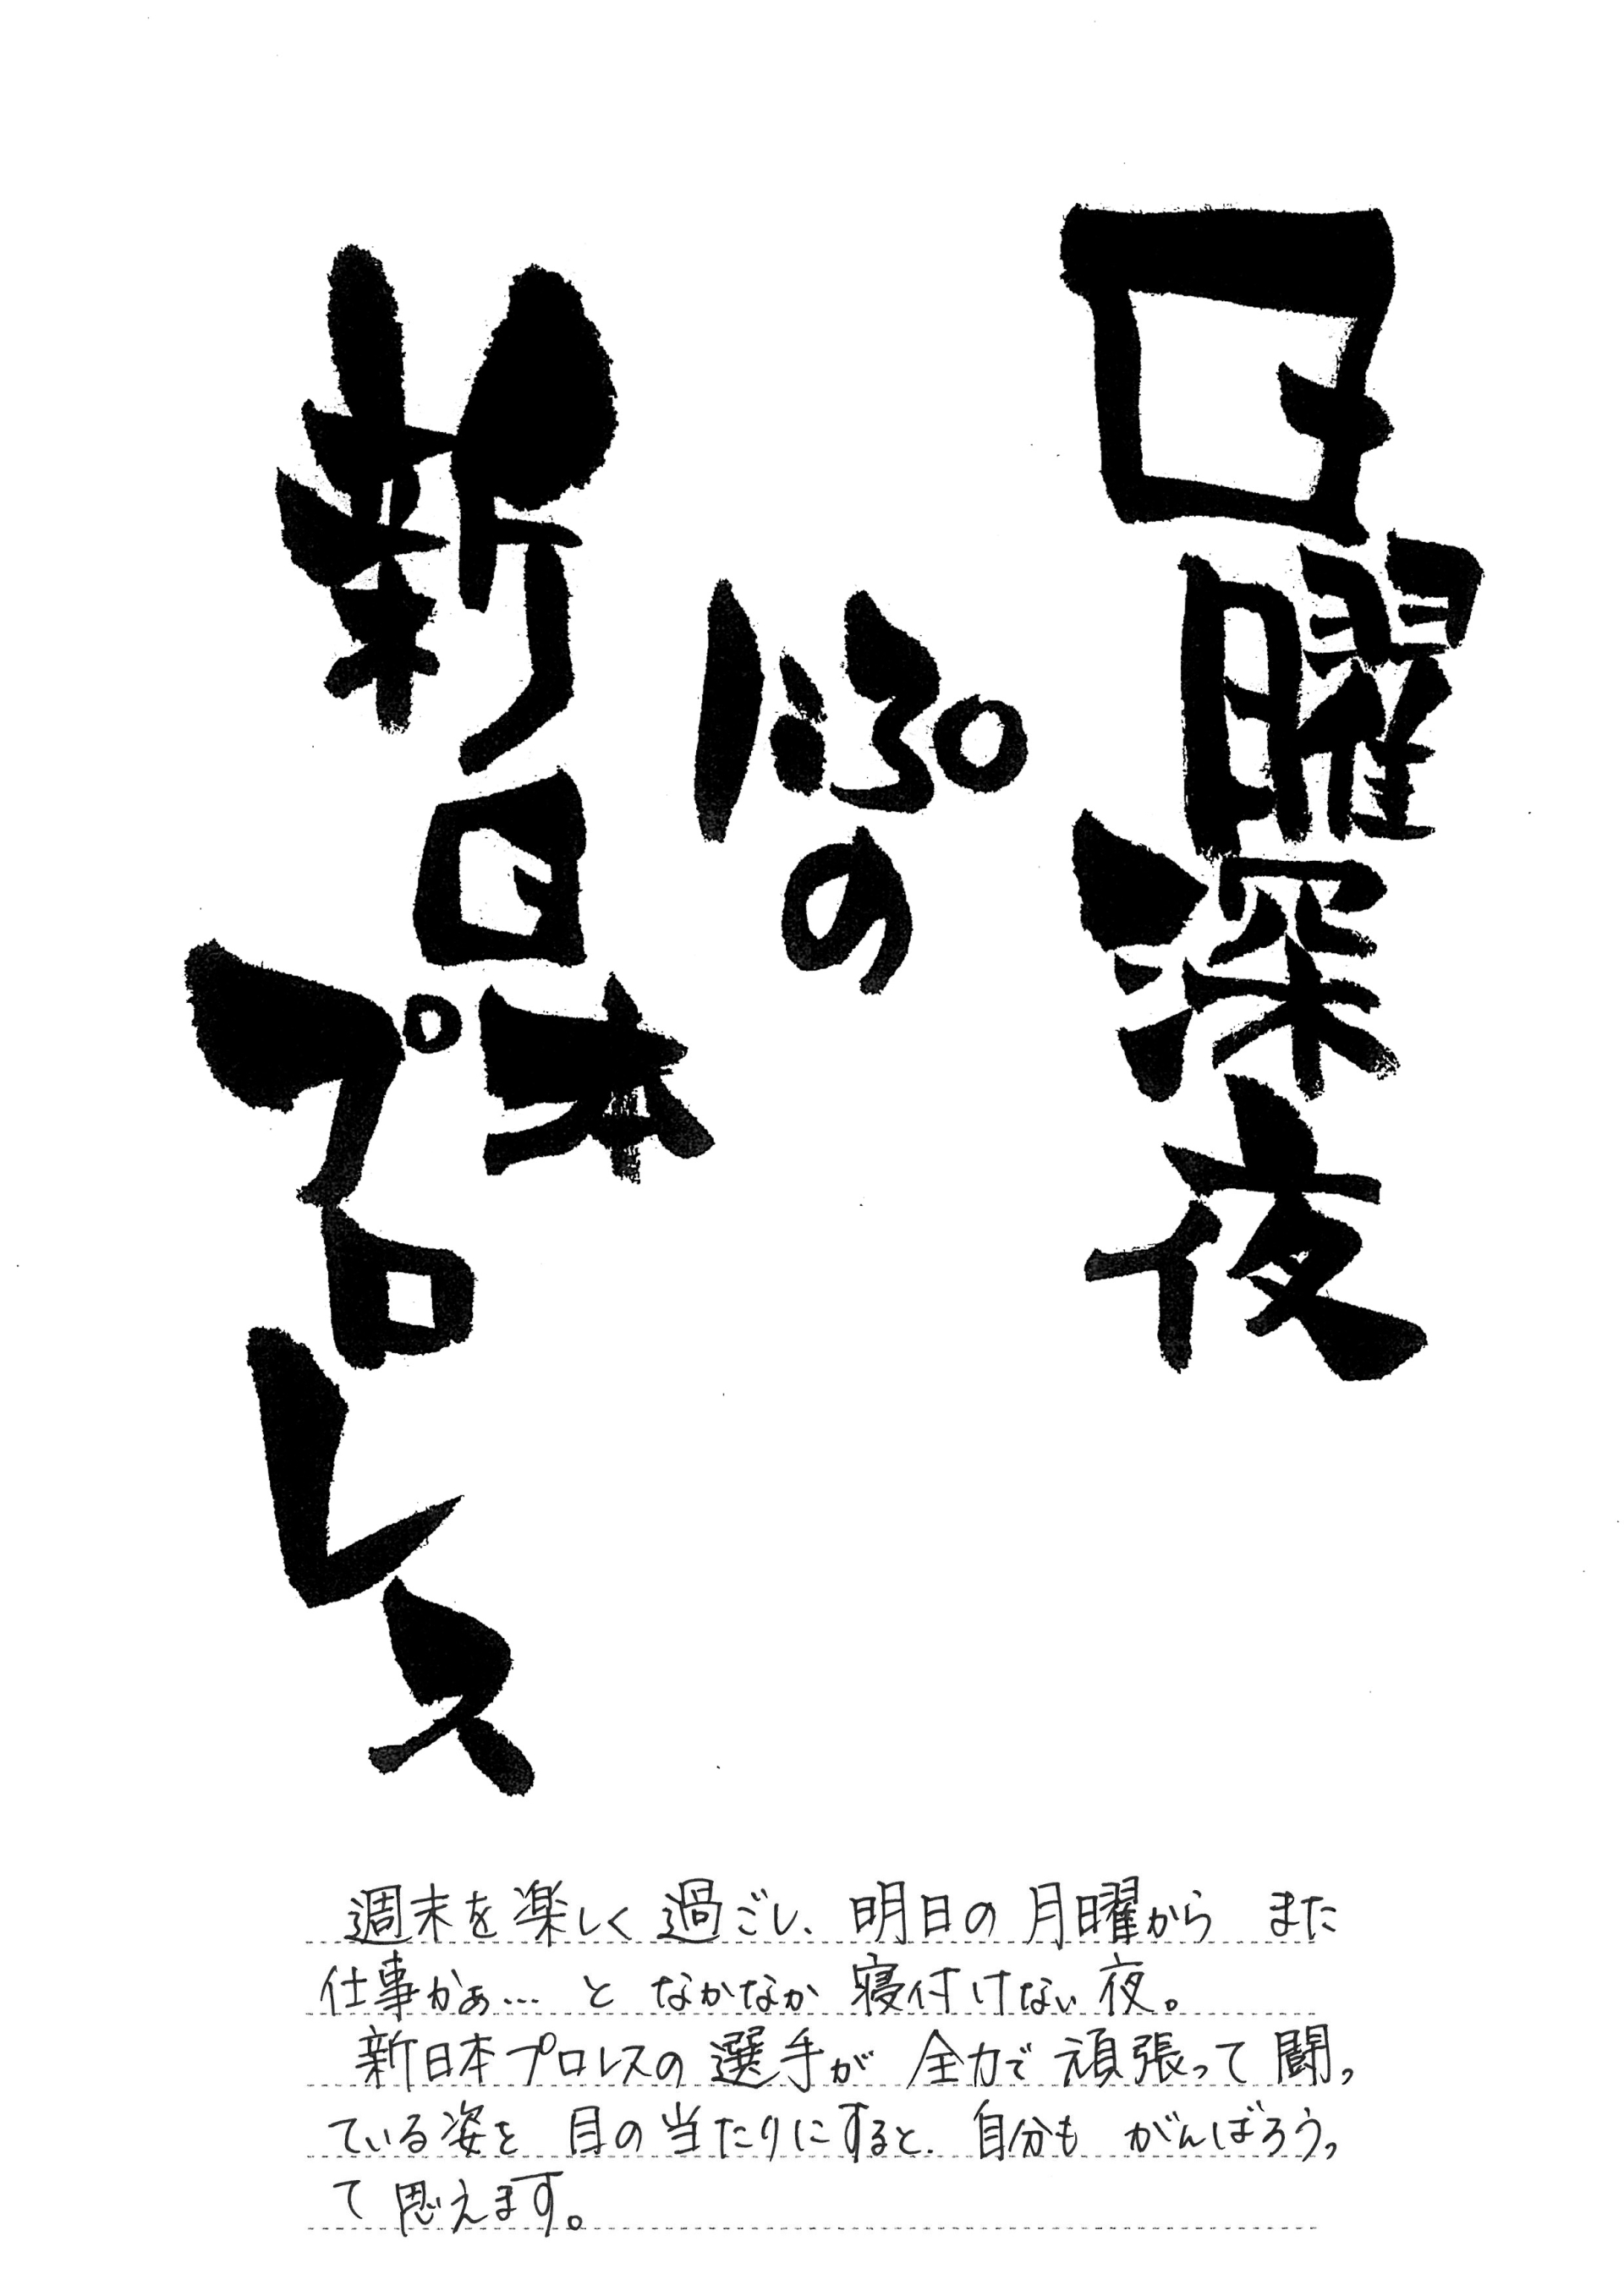 日曜深夜
の
新日本プロレス
週末を楽しく過ごし、明日の月曜から また
仕事かぁ… と なかなか 寝付けない夜。
新日本プロレスの 選手が 全力で 頑張って 闘っ
ている姿を 目の当たりにすると、自分も がんばろうっ
て思えます。